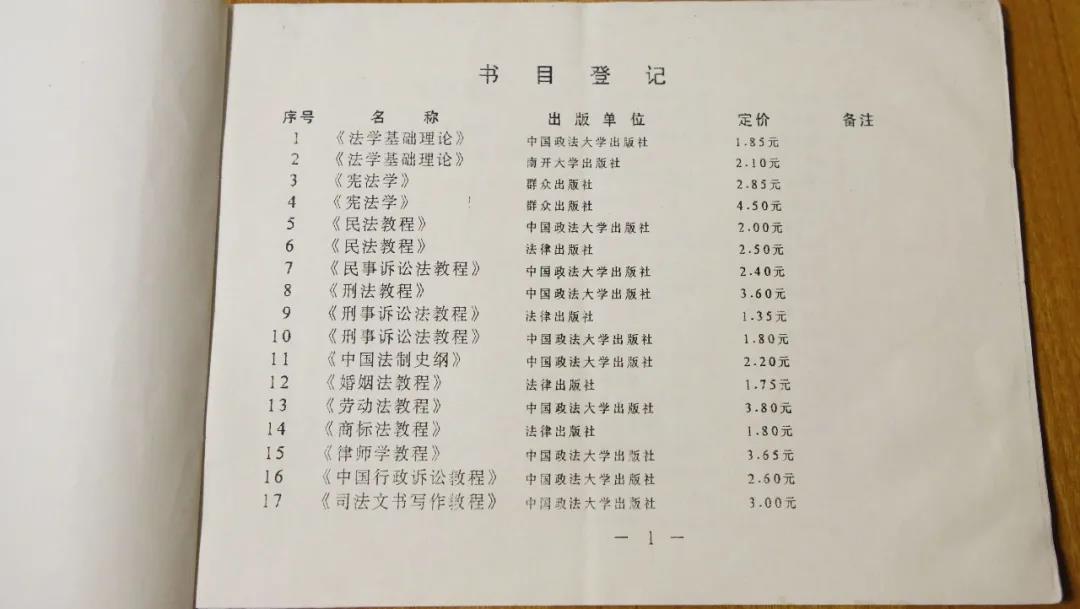 书目登记
序号 名称 出版单位 定价 备注
1 《法学基础理论》 中国政法大学出版社 1.85元
2 《法学基础理论》 南开大学出版社 2.10元
3 《宪法学》 群众出版社 2.85元
4 《宪法学》 群众出版社 4.50元
5 《民法教程》 中国政法大学出版社 2.00元
6 《民法教程》 法律出版社 2.50元
7 《民事诉讼法教程》 中国政法大学出版社 2.40元
8 《刑法教程》 中国政法大学出版社 3.60元
9 《刑事诉讼法教程》 法律出版社 1.35元
10 《刑事诉讼法教程》 中国政法大学出版社 1.80元
11 《中国法制史纲》 中国政法大学出版社 2.20元
12 《婚姻法教程》 法律出版社 1.75元
13 《劳动法教程》 中国政法大学出版社 3.80元
14 《商标法教程》 法律出版社 1.80元
15 《律师学教程》 中国政法大学出版社 3.65元
16 《中国行政诉讼教程》 中国政法大学出版社 2.60元
17 《司法文书写作教程》 中国政法大学出版社 3.00元
— 1 —